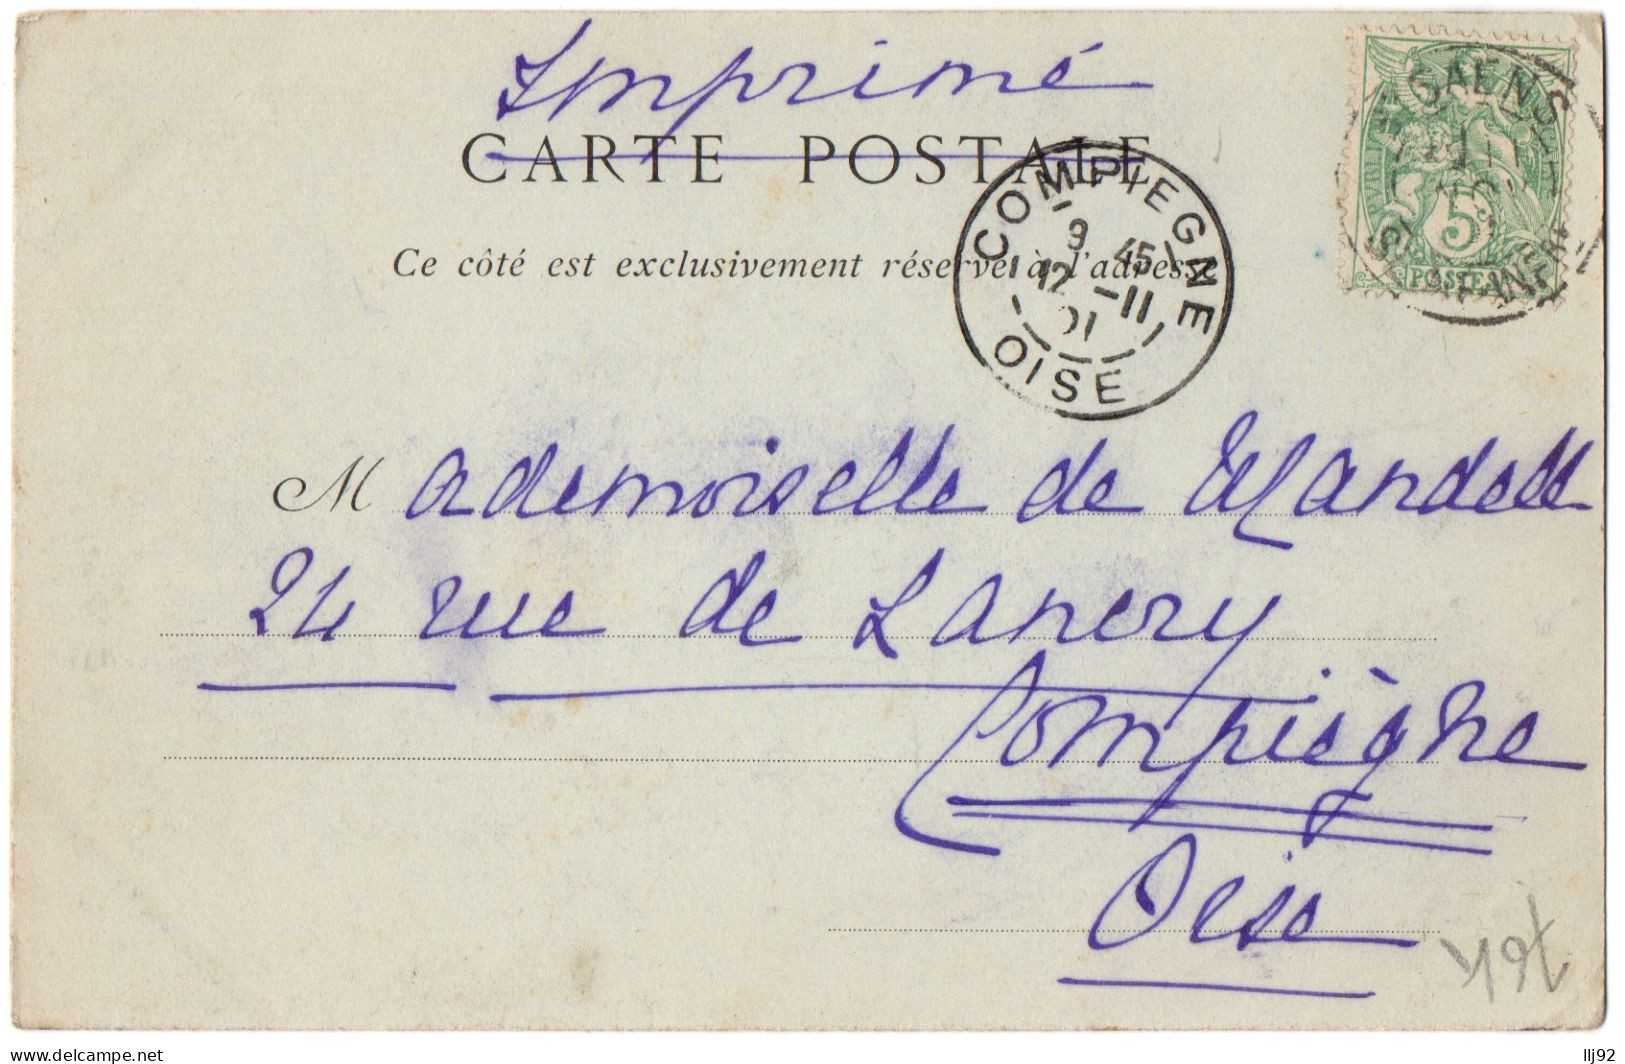 Imprimé
CARTE POSTALE
Ce côté est exclusivement réservé à l'adresse
COMPIEGNE
9 45
12 -11
01
OISE
SAENS
5
POSTE
Mademoiselle de Mandell
24 rue de Lancry
Compiègne
Oise
llj92